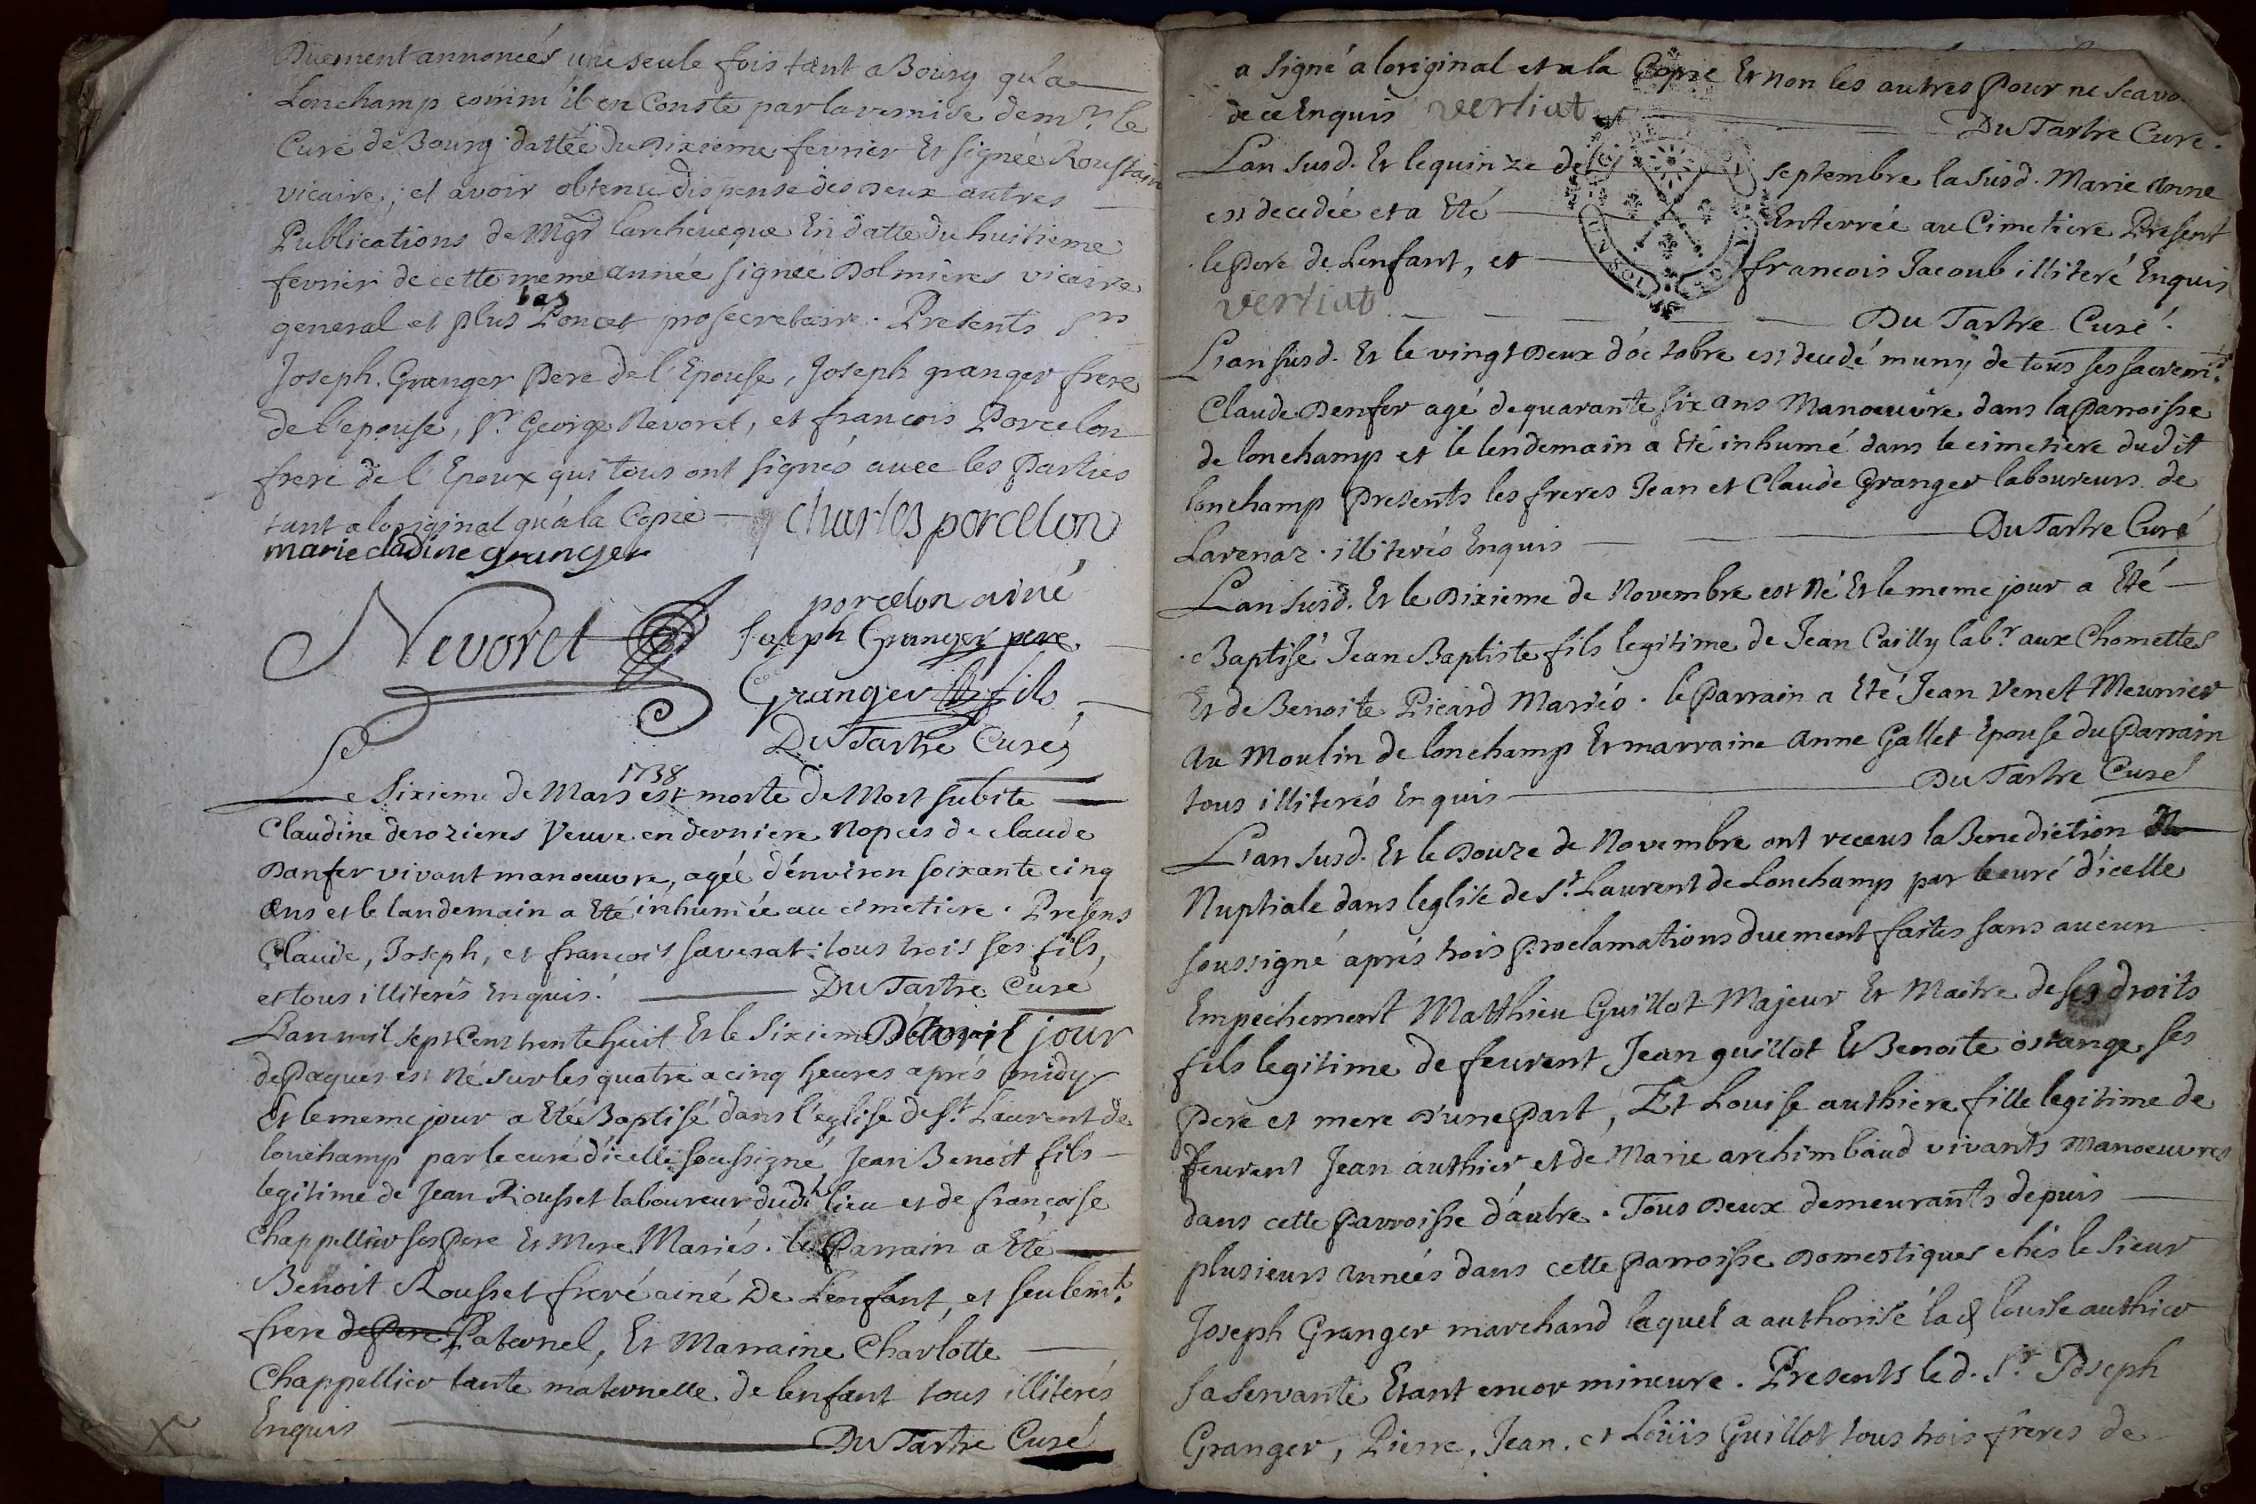 Duement annoncés une seule fois tant a Bourg qu'a
Lonchamp comm'il en Conste par la remise de mr. le
Curé de Bourg dattée du dixieme fevrier Et signée Roustain
vicaire, et avoir obtenu dispense des deux autres
Publications de Mgr larcheveque En datte du huitieme
fevrier de cette meme année signée Dolmieres vicaire
general et plus bas Poncet prosecretaire. Presents srs
Joseph Granger Pere de l'Epouse, Joseph granger frere
de l'epouse, sr. George Nevoret, et francois Porcelon
frere de l'Epoux qui tous ont signés avec les Parties
tant a loriginal qu'a la Copie charles porcelon
marie cladine granger
porcelon ainé
Nevoret Joseph Granger pere
Granger fils
DuTartre Curé
1738
Le Sixieme de Mars est morte de Mort subite
Claudine derozieres Veuve en derniere Nopces de claude
Danfer vivant manoeuvre, agée d'environ soixante cinq
ans et le landemain a Eté inhumée au cimetiere. Presens
Claude, Joseph, et francois saverat tous trois ses fils,
et tous illiterés Enquis. DuTartre Curé
Lan mil sept Cent trente huit Et le Sixieme D'avril jour
de Paques est Né sur les quatre a cinq heures aprés midy
Et le meme jour a Eté Baptisé dans l'eglise de st. Laurent de
lonchamp par le curé d'icelle soussigné Jean Benoit fils
legitime de Jean Rousset laboureur dudt lieu et de francoise
Chappellier ses Pere Et Mere Mariés. le Parrain a Eté
Benoit Rousset freré ainé de Lenfant, et seulemt.
frere de Pere Paternel, Et Marraine Charlotte
Chappellier tante maternelle de lenfant tous illiterés
Enquis DuTartre Curé
a signé a loriginal et a la Copie Et non les autres Pour ne scavo
de ce Enquis vertiut DuTartre Curé.
Lan susd. Et le quinze de septembre la susd. Marie Anne
est decedée et a Eté Enterrée au Cimetiere Present
le Pere de Lenfant, et francois Jacoub illiteré Enquis
vertiut Du Tartre Curé.
Lan susd. Et le vingt deux d'octobre est decedé muny de tous ses sacremts.
Claude Denfer agé de quarante six ans Manoeuvre dans la Parroisse
de lonchamp et le lendemain a Eté inhumé dans le cimetiere dudit
lonchamp Presents les freres Jean et Claude Granger laboureurs de
Larenaz. illiterés Enquis DuTartre Curé
Lan susd. Et le dixieme de Novembre est Né Et le meme jour a Eté
Baptisé Jean Baptiste fils legitime de Jean Cailly labr aux Chomettes
Et de Benoite Picard Mariés. le Parrain a Eté Jean Venet Meunier
Au Moulin de lonchamp Et marraine Anne Gallet Epouse du Parrain
tous illiterés Enquis DuTartre Curé
Lan susd. Et le Douze de Novembre ont receus la Benediction
Nuptiale dans leglise de st. Laurent de Lonchamp par le curé d'icelle
soussigné aprés trois Proclamations duement faites sans aucun
Empechement Matthieu Guillot Majeur Et Maitre de ses droits
fils legitime de feurent Jean guillot Et Benoite ostange ses
Pere et mere d'une Part, Et Louise authiere fille legitime de
feurent Jean authier et de Marie archimbaud vivants Manoeuvres
dans cette Parroisse d'autre. Tous Deux demeurants depuis
plusieurs années dans cette Parroisse Domestiques chés le sieur
Joseph Granger marchand lequel a authorisé lad louise authier
sa servante Etant encor mineure. Presents led. sr. Joseph
Granger, Pierre, Jean, et Loüis Guillot tous trois freres de